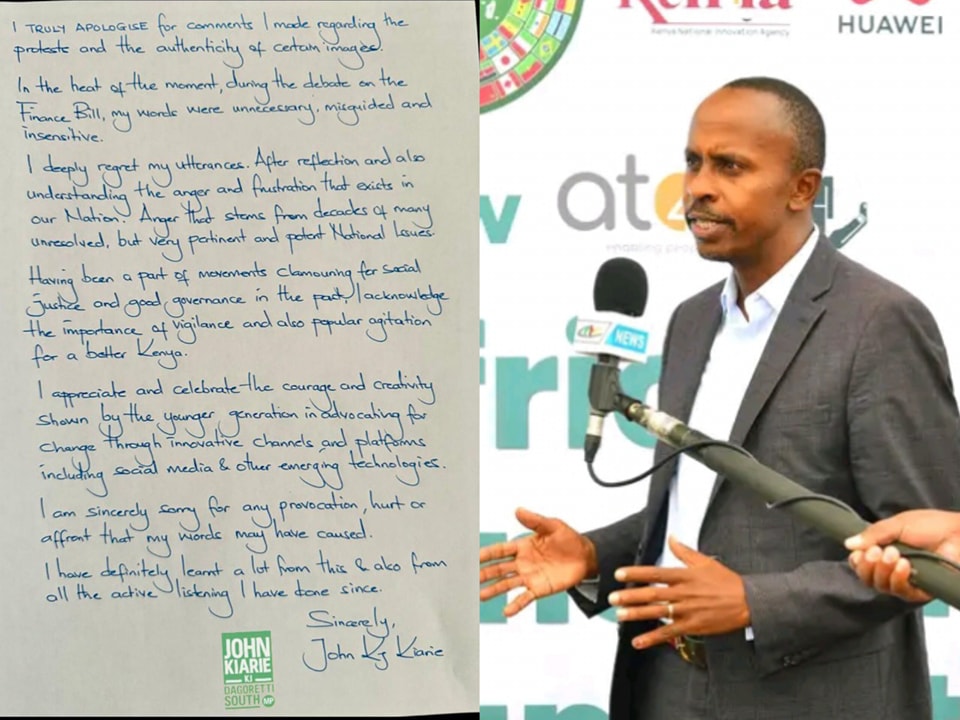 I TRULY APOLOGISE for comments I made regarding the
protests and the authenticity of certain images.
In the heat of the moment, during the debate on the
Finance Bill, my words were unnecessary, misguided and
insensitive.
I deeply regret my utterances. After reflection and also
understanding the anger and frustration that exists in
our Nation. Anger that stems from decades of many
unresolved, but very pertinent and potent National Issues.
Having been a part of movements clamouring for social
justice and good governance in the past, I acknowledge
the importance of vigilance and also popular agitation
for a better Kenya.
I appreciate and celebrate the courage and creativity
shown by the younger generation in advocating for
change through innovative channels and platforms
including social media & other emerging technologies.
I am sincerely sorry for any provocation, hurt or
affront that my words may have caused.
I have definitely learnt a lot from this & also from
all the active listening I have done since.
Sincerely,
John Kj Kiarie
JOHN
KIARIE
KJ
DAGORETTI
SOUTH MP
Kenya National Innovation Agency
HUAWEI
at
enabling
NEWS